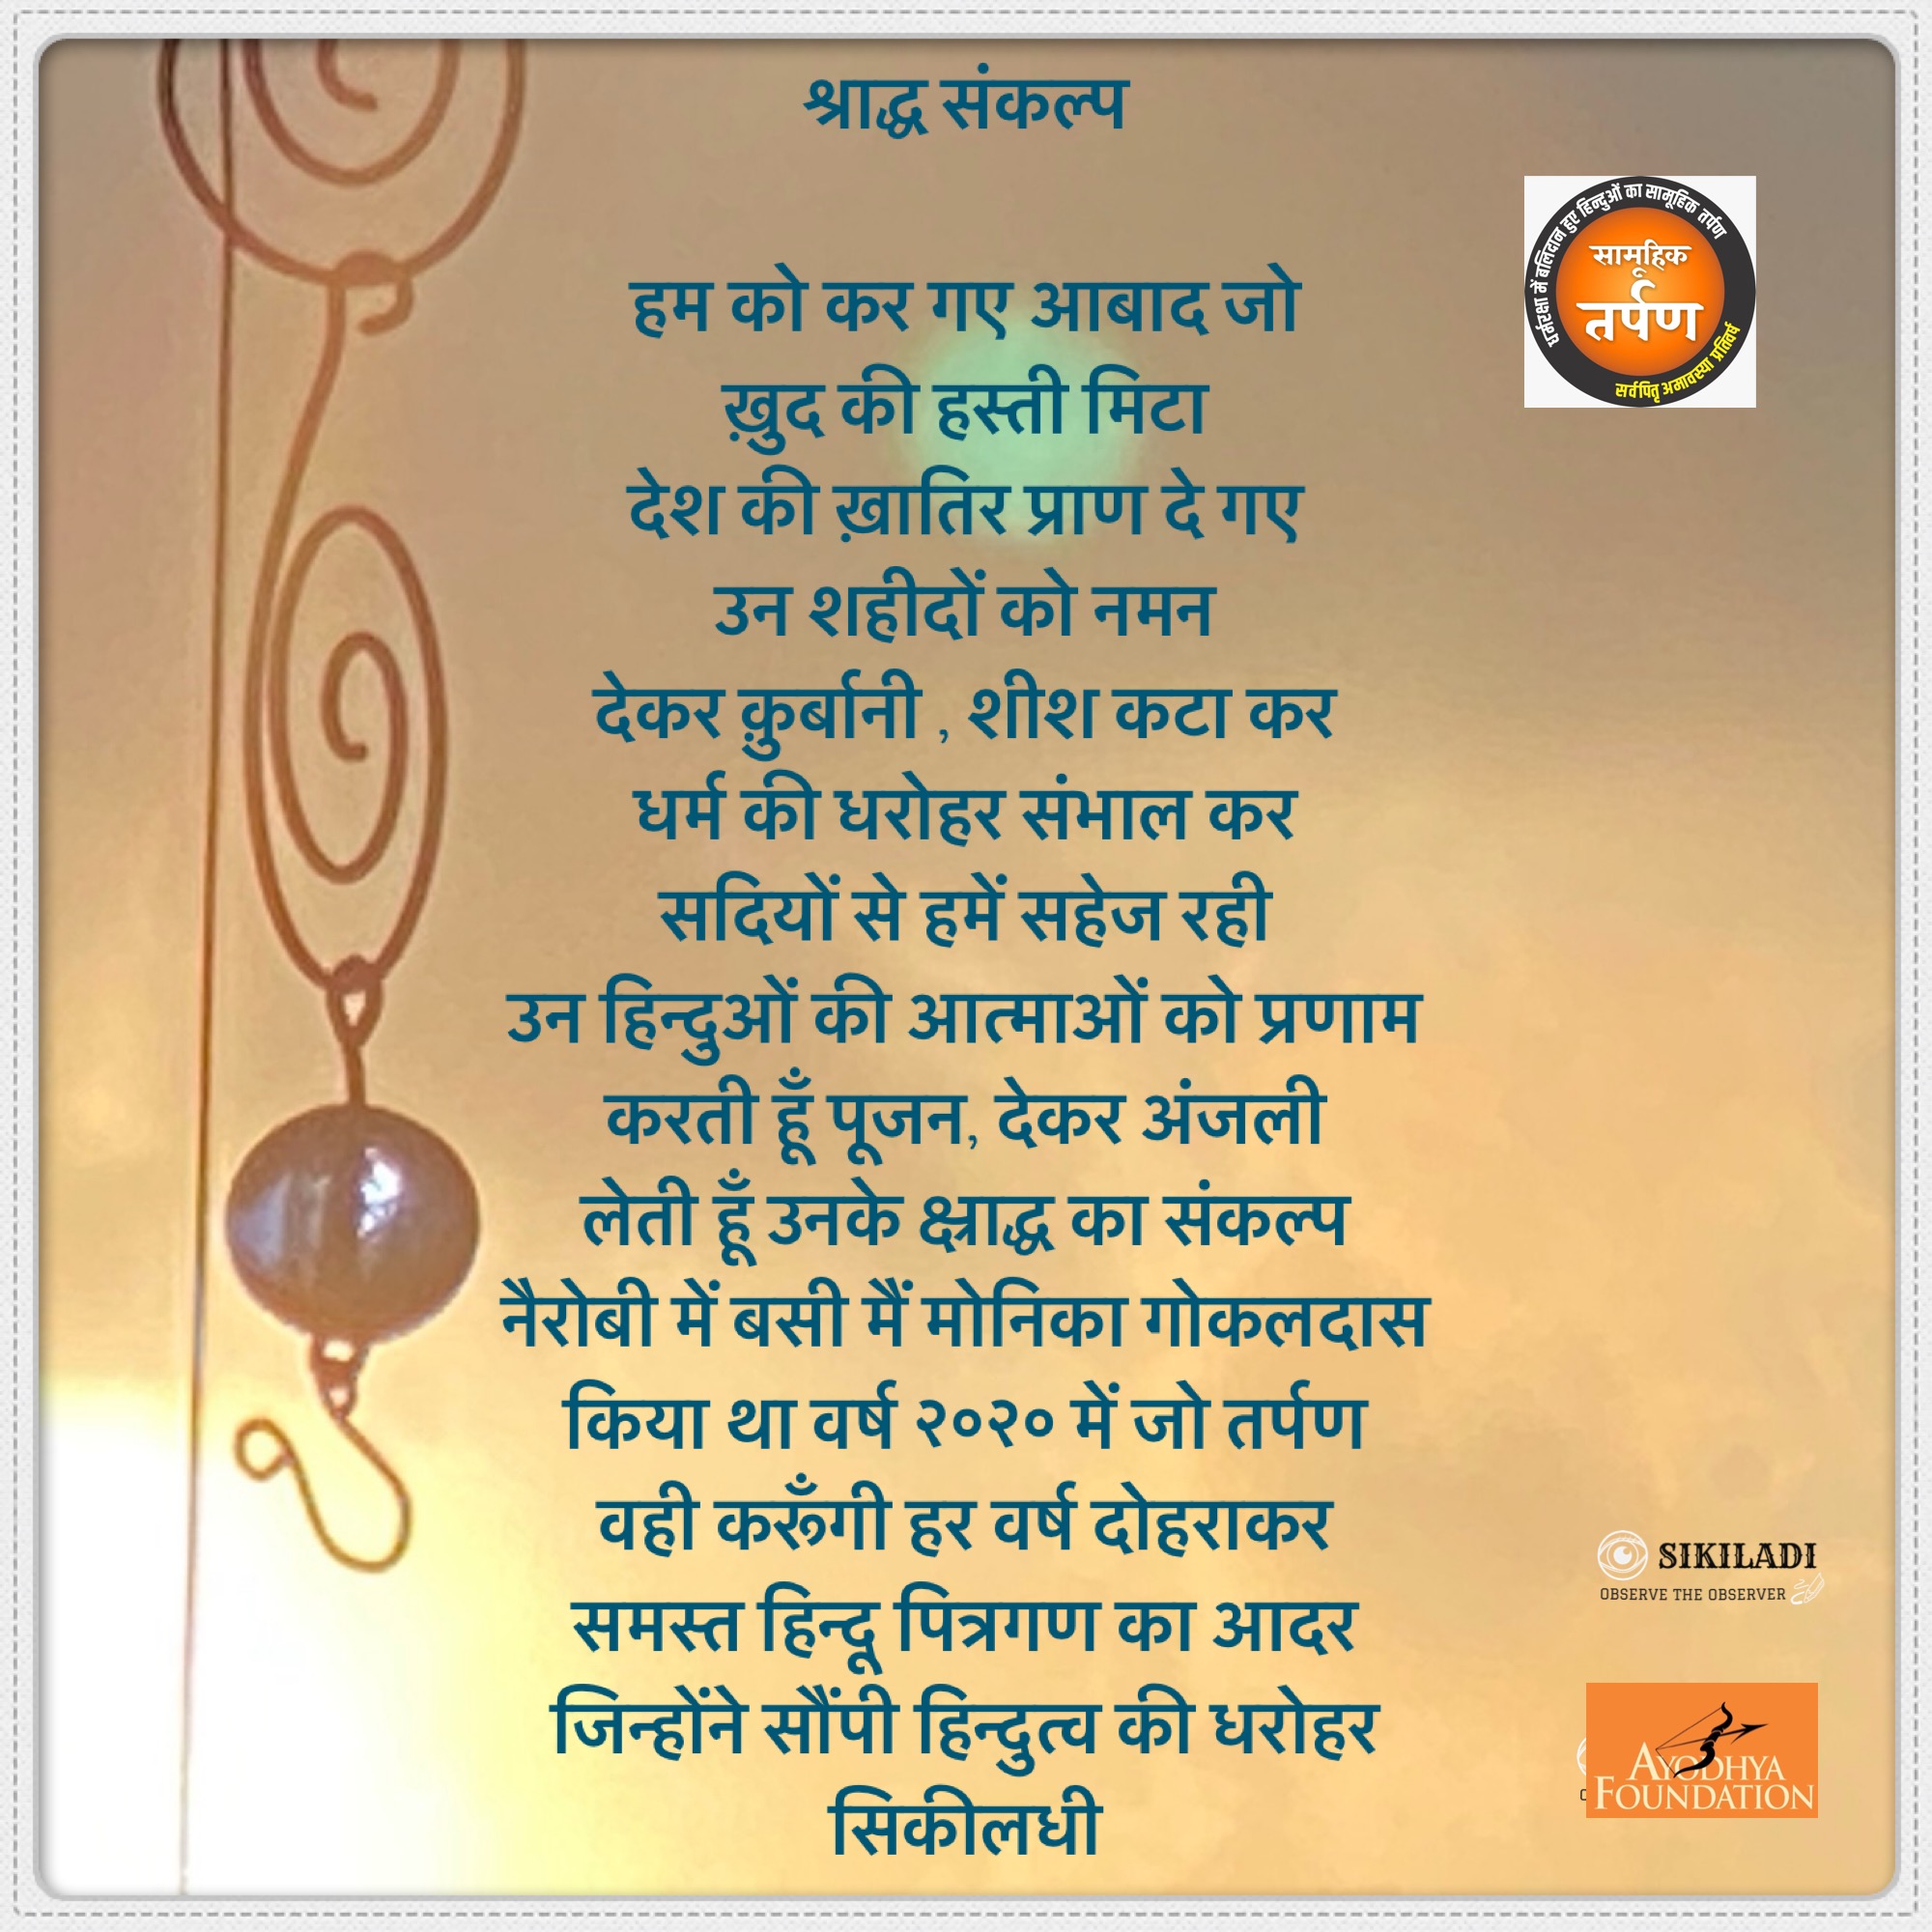 श्राद्ध संकल्प
धर्मरक्षा में बलिदान हुए हिन्दुओं का सामूहिक तर्पण
सामूहिक
तर्पण
सर्वपितृ अमावस्या प्रतिवर्ष
हम को कर गए आबाद जो
ख़ुद की हस्ती मिटा
देश की ख़ातिर प्राण दे गए
उन शहीदों को नमन
देकर क़ुर्बानी , शीश कटा कर
धर्म की धरोहर संभाल कर
सदियों से हमें सहेज रही
उन हिन्दुओं की आत्माओं को प्रणाम
करती हूँ पूजन, देकर अंजली
लेती हूँ उनके क्ष्राद्ध का संकल्प
नैरोबी में बसी मैं मोनिका गोकलदास
किया था वर्ष २०२० में जो तर्पण
वही करूँगी हर वर्ष दोहराकर
समस्त हिन्दू पित्रगण का आदर
जिन्होंने सौंपी हिन्दुत्व की धरोहर
सिकीलधी
SIKILADI
OBSERVE THE OBSERVER
AYODHYA
FOUNDATION